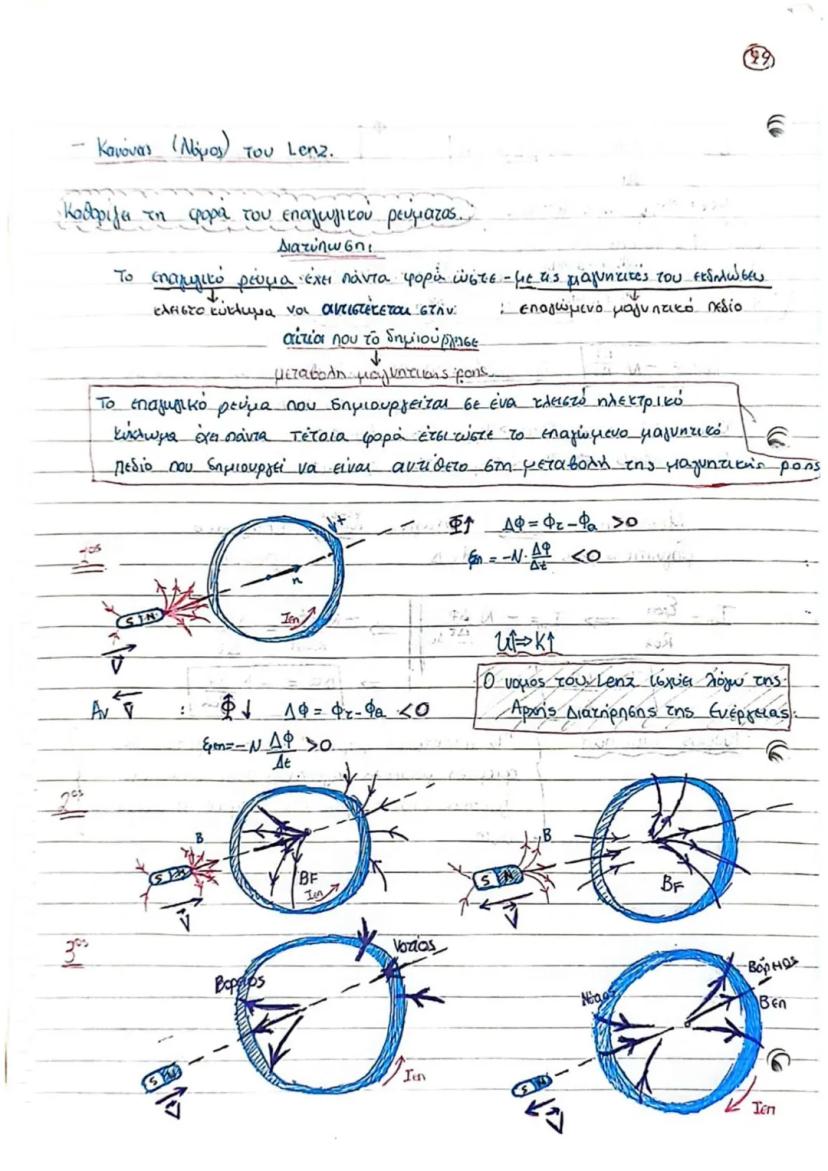 49
- Κανόνας (Νόμος) του Lenz.
Καθορίζει τη φορά του επαγωγικού ρεύματος.
Διατύπωση:
Το επαγωγικό ρεύμα έχει πάντα φορά ώστε - με τις μαγνητικές του εκδηλώσεις
κλειστό κύκλωμα να αντιστέκεται στην : επαγώμενο μαγνητικό πεδίο
αιτία που το δημιούργησε
μεταβολή μαγνητικής ροής.
Το επαγωγικό ρεύμα που δημιουργείται σε ένα κλειστό ηλεκτρικό
κύκλωμα έχει πάντα τέτοια φορά έτσι ώστε το επαγώμενο μαγνητικό
πεδίο που δημιουργεί να είναι αντίθετο στη μεταβολή της μαγνητικής ροής
1ος
+
n
Iεπ
S N
V
Φ↑ ΔΦ = Φτ - Φα > 0
Eεπ = -N · ΔΦ/Δt < 0
U↑ ⇒ K↑
Ο νομός του Lenz ισχύει λόγω της
Αρχής Διατήρησης της Ενέργειας.
Αν V : Φ↓ ΔΦ = Φτ - Φα < 0
Eεπ = -N ΔΦ/Δt > 0
2ος
B
S N
V
BF
Iεπ
B
S N
V
BF
3ος
Βορειος
Νοτιος
S N
V
Iεπ
Νότιος
Βόρειος
Βεπ
S N
V
Iεπ